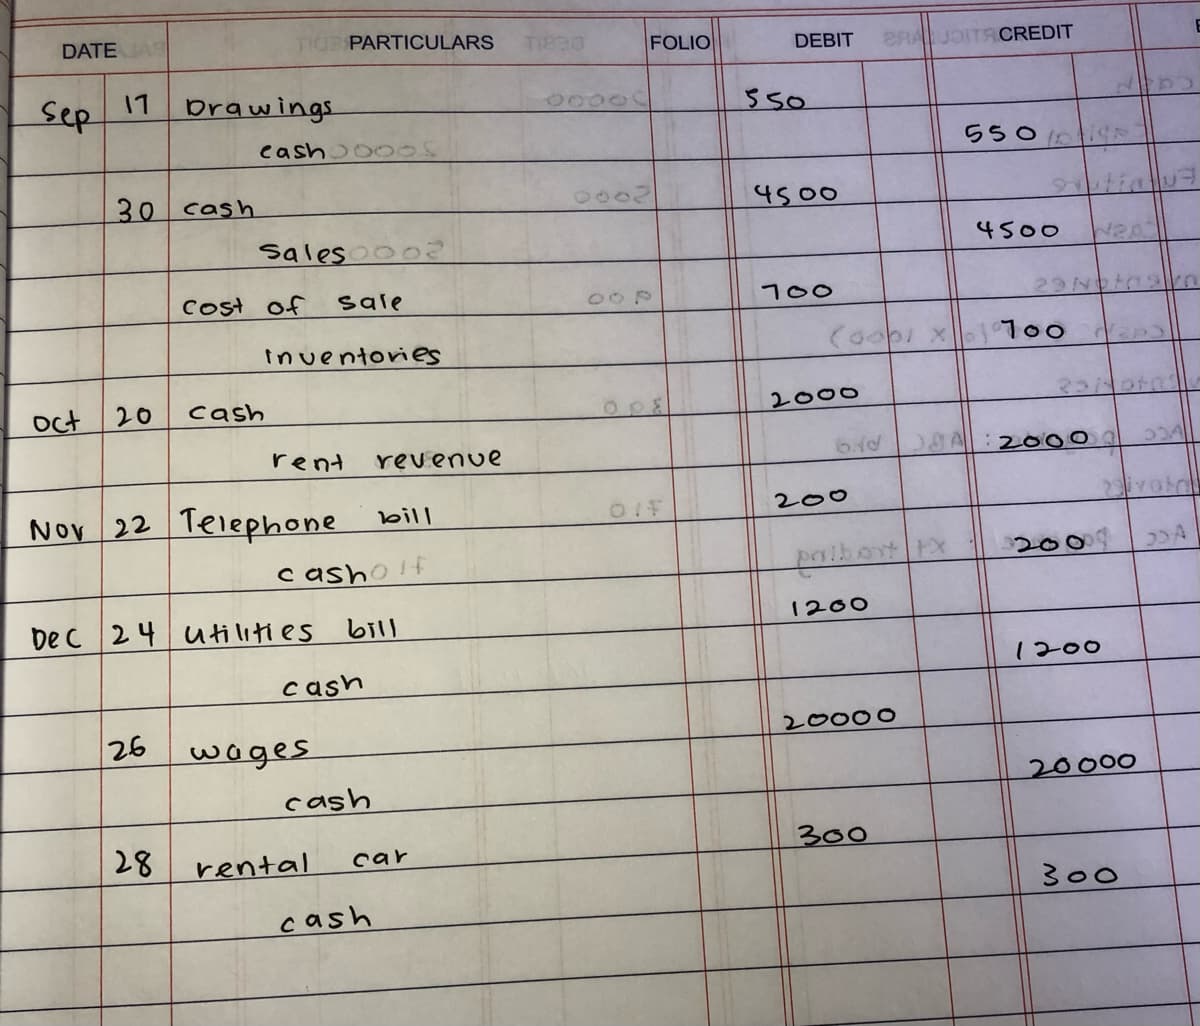 DATE PARTICULARS FOLIO DEBIT CREDIT
Sep 17 Drawings 550
cash 550
30 cash 4500
Sales 4500
cost of sale 700
Inventories 700
Oct 20 cash 2000
rent revenue 2000
Nov 22 Telephone bill 200
cash 200
Dec 24 utilities bill 1200
cash 1200
26 wages 20000
cash 20000
28 rental car 300
cash 300